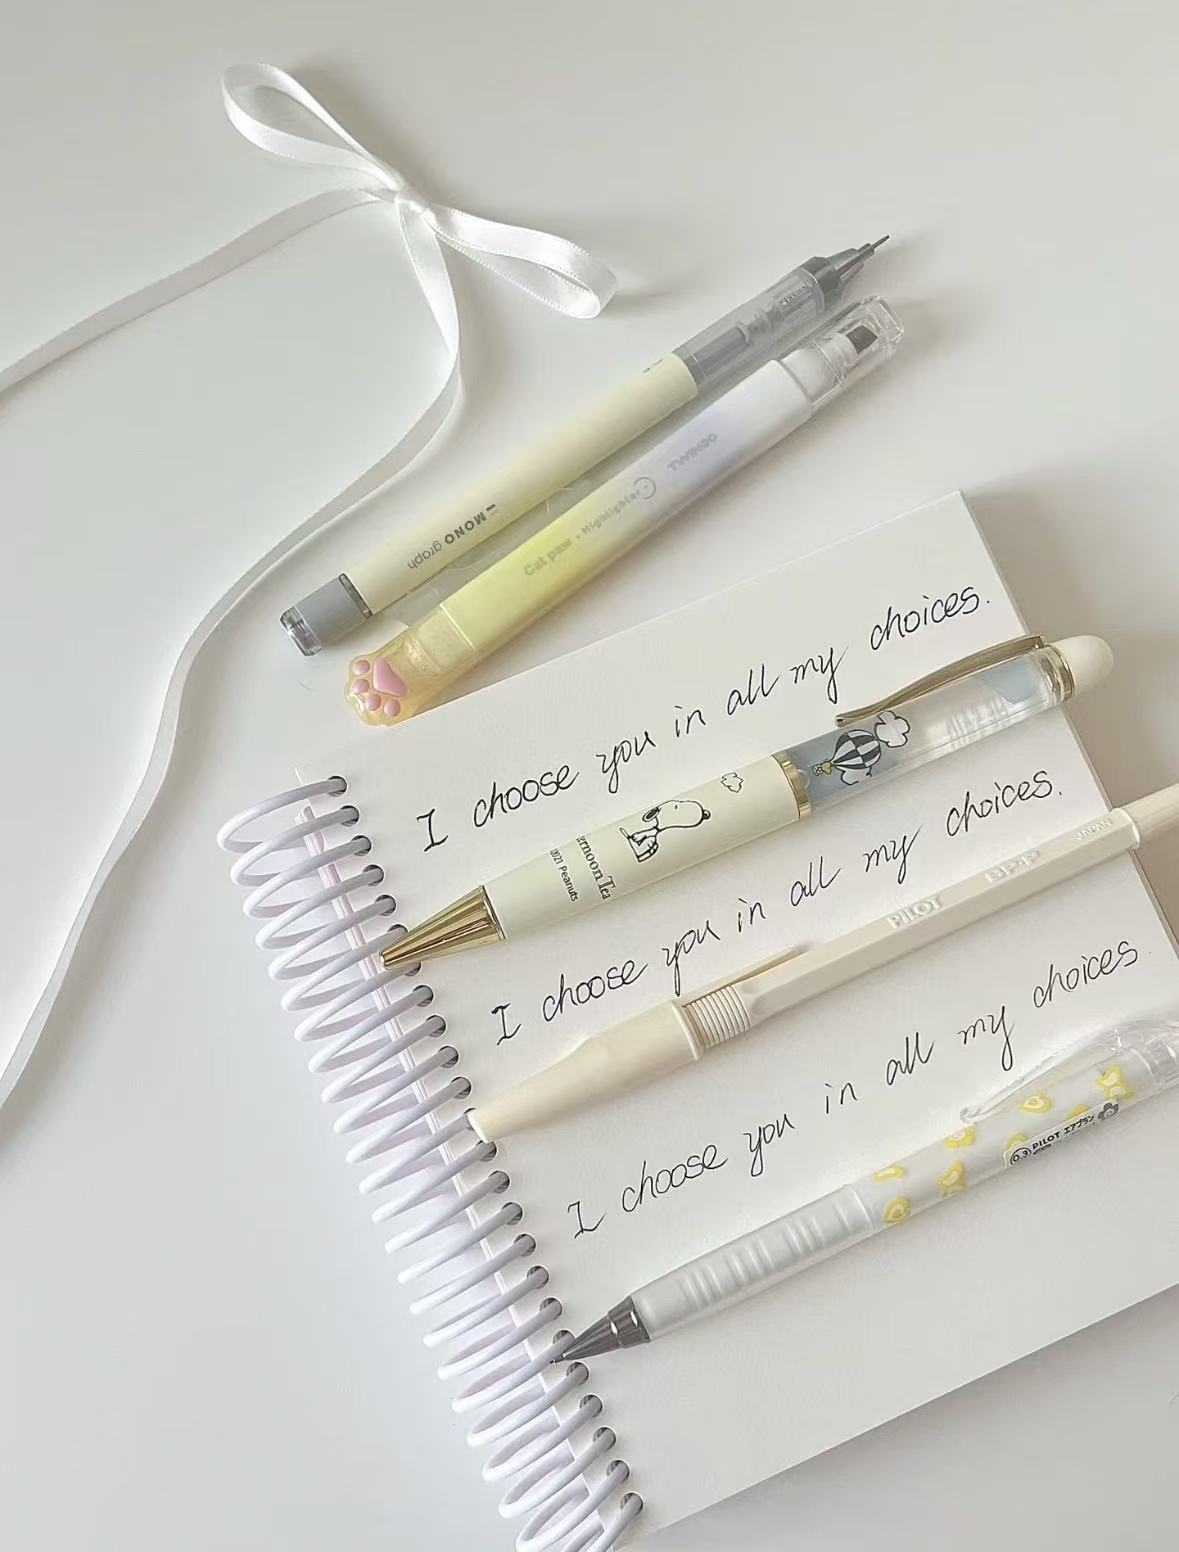 MONO graph
Cat paw · Highlighter
TWINBO
I choose you in all my choices.
ernoon Tea
©2021 Peanuts
I choose you in all my choices.
PILOT BP-P JAPAN
I choose you in all my choices
0.3 PILOT エアブラン